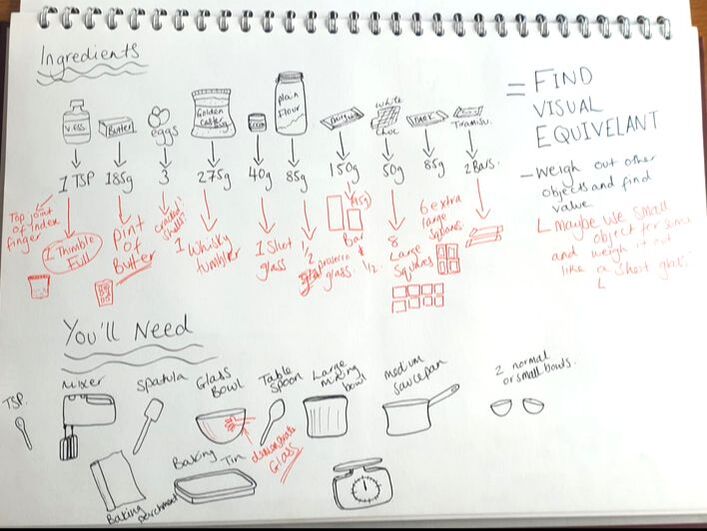 Ingredients
V.ESS
Butter
eggs
Golden
Caster
plain
Flour
White
choc
DARK
Tiramisu.
1 TSP
185g
3
275g
40g
85g
150g
50g
85g
2 Bars.
Top joint
of Index
finger
1 Thimble
Full
pint
of
Butter
cracked
shells?
1 Whisky
tumbler
1 Shot
glass
1/2
glass.
Bar
& 1/2
8
Large
Squares
6 extra
large
Squares.
= FIND
VISUAL
EQUIVELANT
- Weigh out other
objects and find
value
L maybe use small
object for some
and weigh it out
like a shot glass.
You'll Need
TSP
Mixer
Spatula
Glass
Bowl
Table
Spoon
Large
mixing
bowl
medium
saucepan
2 normal
or small bowls.
demonstrate
Glass
Baking
parchment
Baking Tin